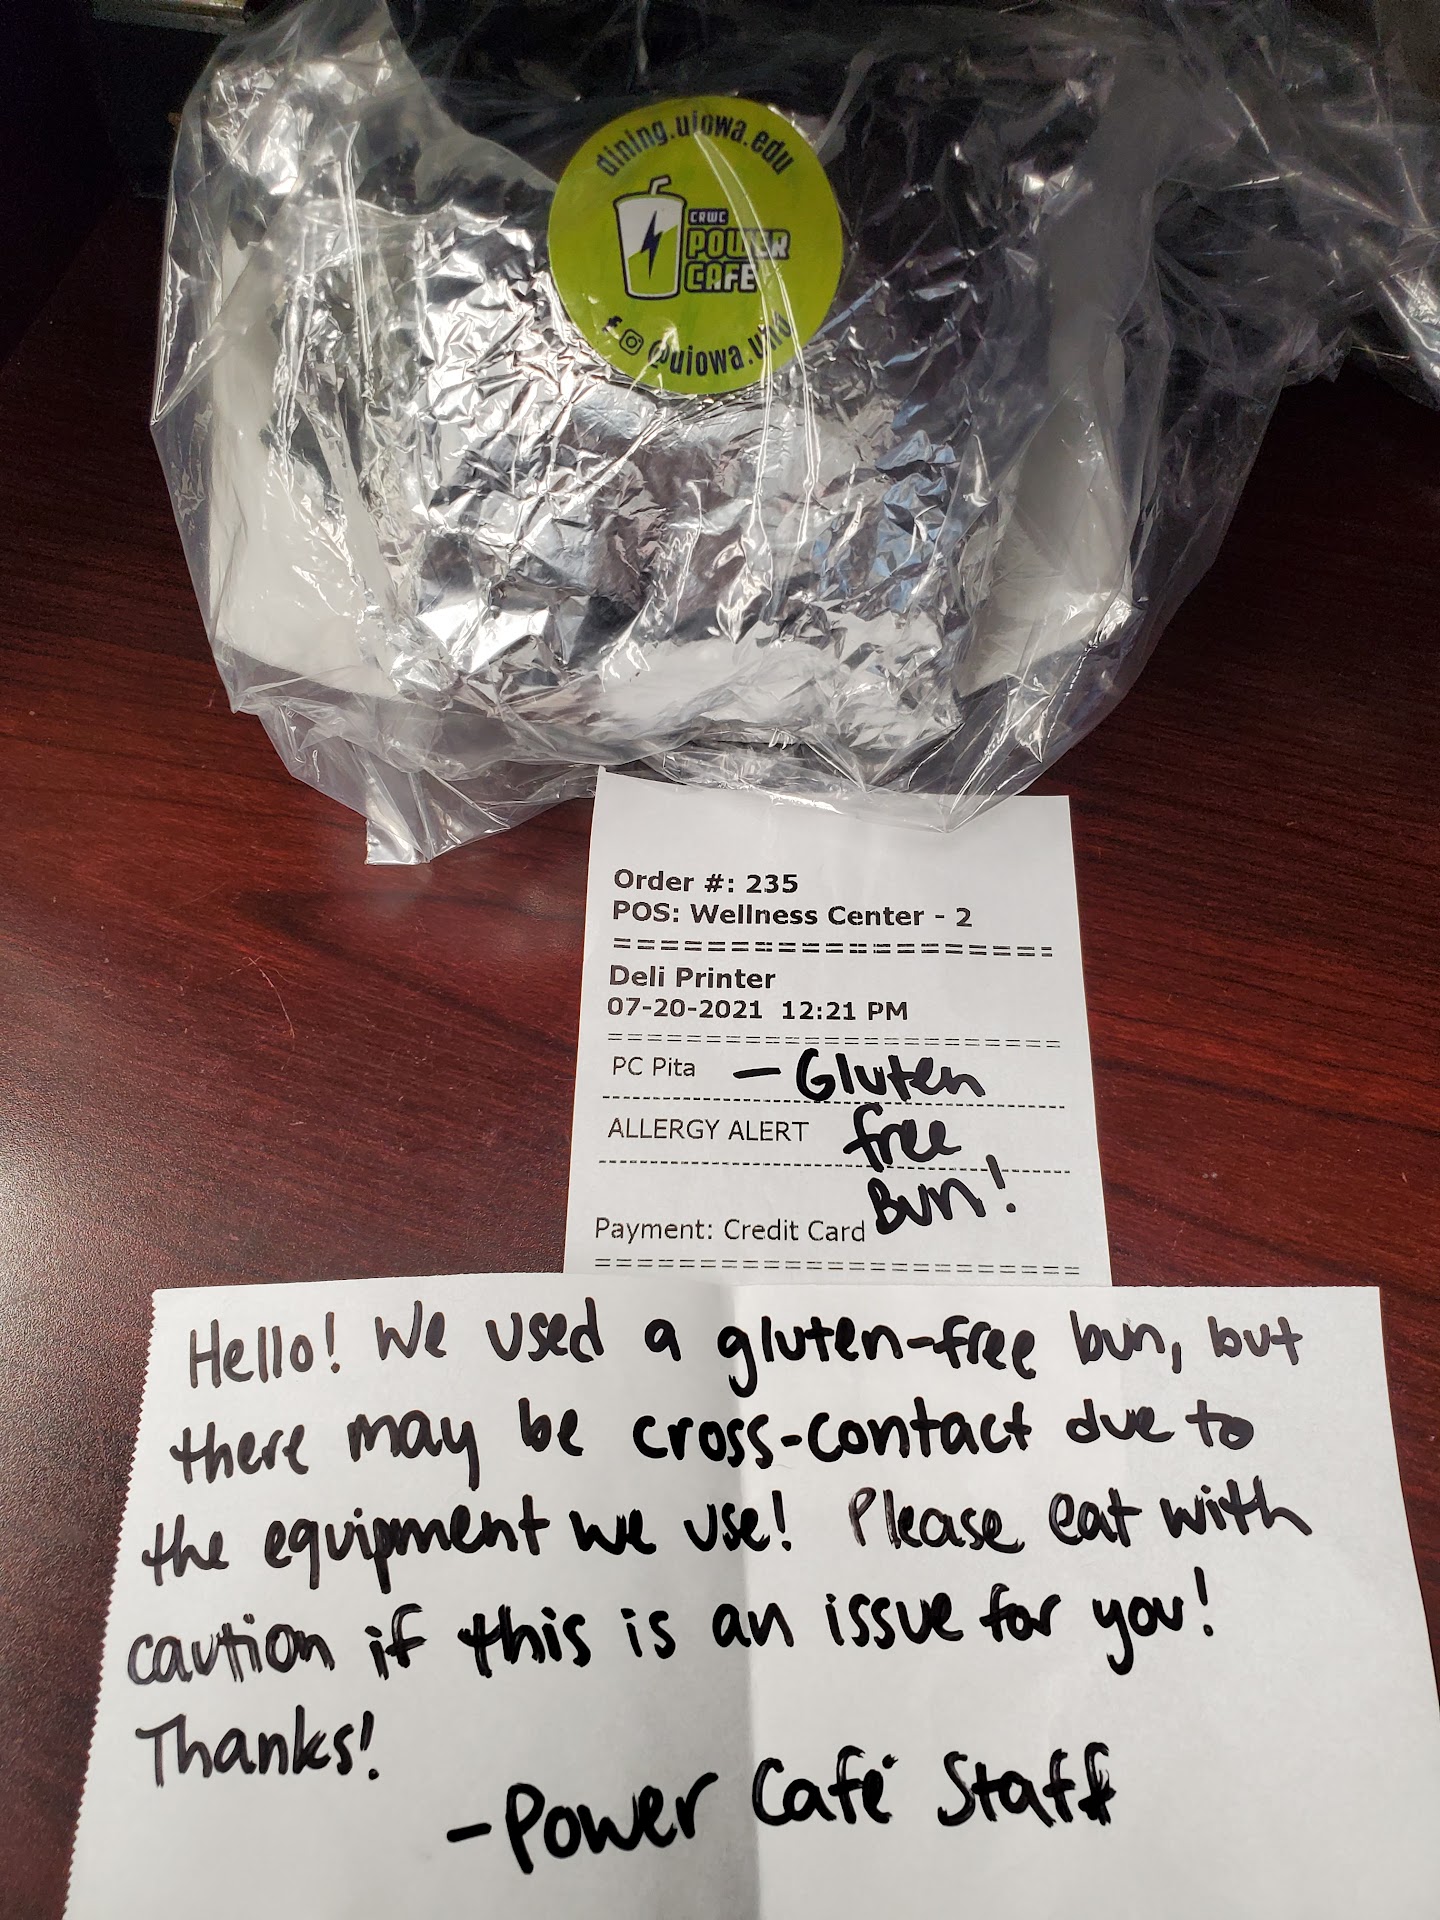 dining.uiowa.edu
CRWC
POWER
CAFE
Order #: 235
POS: Wellness Center - 2
====================
Deli Printer
07-20-2021 12:21 PM
========================
PC Pita - Gluten
ALLERGY ALERT free
Bun!
Payment: Credit Card
=========================
Hello! We used a gluten-free bun, but
there may be cross-contact due to
the equipment we use! Please eat with
caution if this is an issue for you!
Thanks!
-Power Café Staff